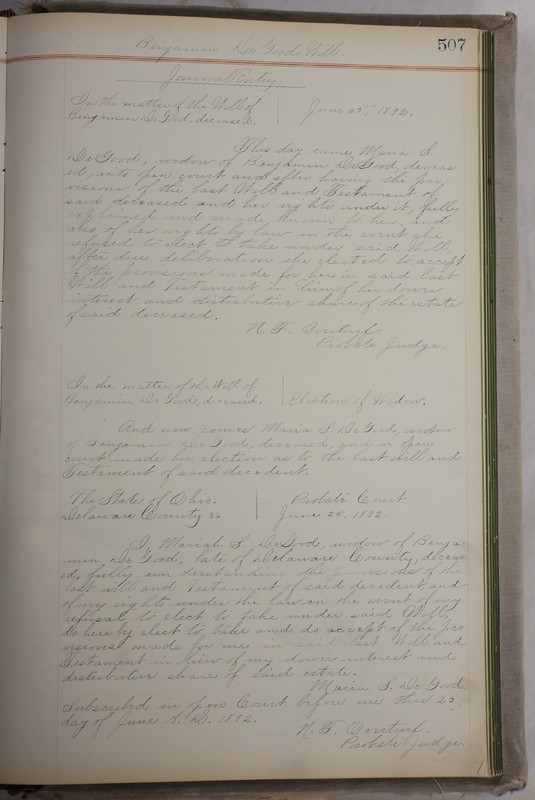 507
Benjamin De Good's Will.
Journal Entry.
In the matter of the Will of
Benjamin De Good, deceased.
June 25", 1892.
This day came Maria S.
De Good, widow of Benjamin De Good, deceas
ed, into open court and after having the pro-
visions of the last Will and Testament of
said deceased and her rights under it, fully
explained and made known to her, and
also of her rights by law in the event she
refused to elect to take under said Will,
after due deliberation she elected to accept
of the provisions made for her in said last
Will and Testament in lieu of her dower
interest and distributive share of the estate
of said deceased.
N. F. Overturf
Probate Judge.
In the matter of the Will of
Benjamin De Good, deceased.
Election of Widow.
And now comes Maria S. De Good, widow
of Benjamin De Good, deceased, and in open
court made her election as to the last will and
Testament of said decedent.
The State of Ohio.
Delaware County ss
Probate Court
June 25, 1892.
I, Mariah S. De Good, widow of Benja-
min De Good, late of Delaware County, deceas-
ed, fully understanding the provisions of the
last will and Testament of said decedent and
of my rights under the law in the event of my
refusal to elect to take under said Will,
do here by elect to take and do accept of the pro-
visions made for me in said last Will and
Testament in lieu of my dower interest and
distributive share of said estate.
Maria S. De Good.
Subscribed in open Court before me this 25,
day of June A. D. 1892.
N. F. Overturf.
Probate Judge.